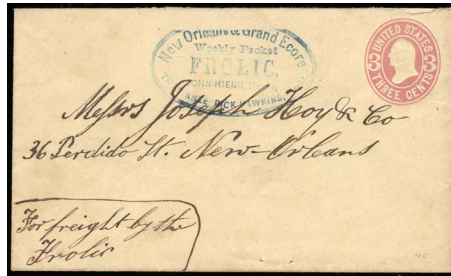 New Orleans & Grand Ecore
Weekly Packet
FROLIC,
UNITED STATES
3 3
THREE CENTS
Messrs Joseph Hoy & Co
36 Perdido St. New-Orleans
For freight by the
Frolic